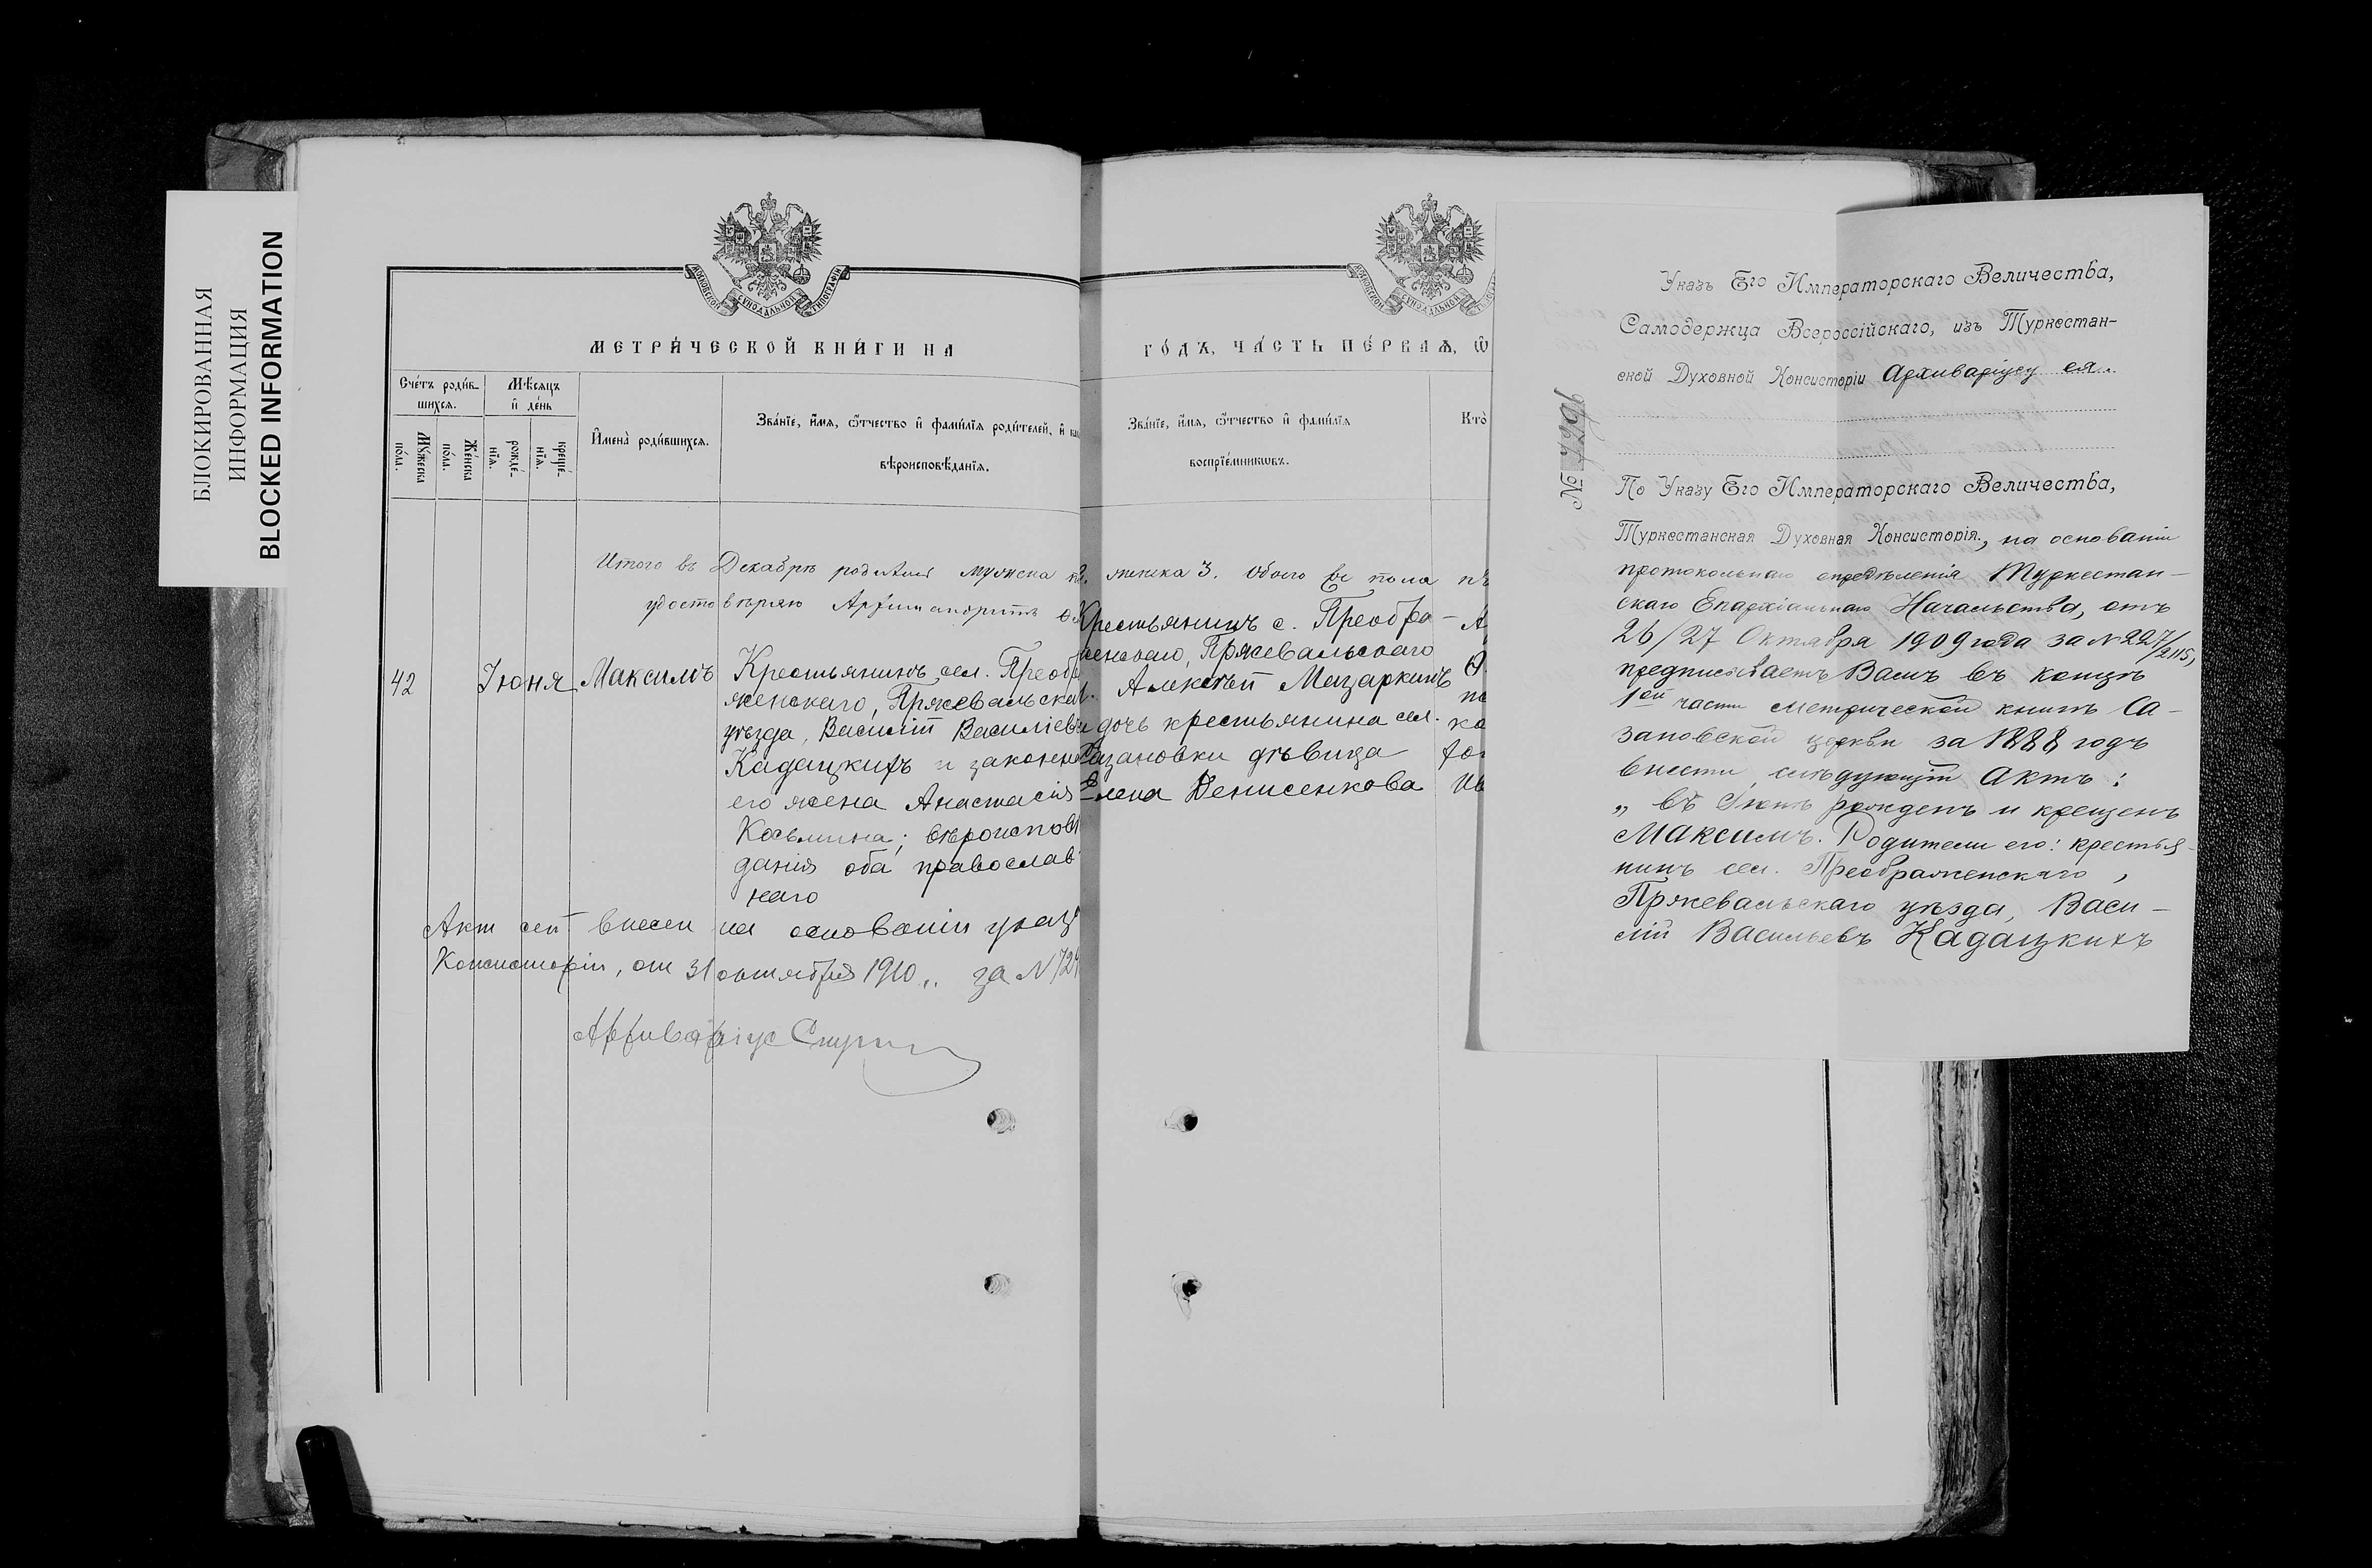 БЛОКИРОВАННАЯ
ИНФОРМАЦИЯ
BLOCKED INFORMATION
МОСКОВСКОЙ СѴНОДАЛЬНОЙ ТИПОГРАФІИ
МЕТРИ́ЧЕСКОЙ КНИ́ГИ НА
Сче́тъ роди́в-
шихсѧ.
Мѣ́сѧцъ
и҆ де́нь
Мꙋ́жеска
по́ла.
Же́нска
по́ла.
рожде́-
нїѧ.
креще́-
нїѧ.
И҆мена̀ роди́вшихсѧ.
Зва́нїе, и҆́мѧ, ѻ҆́тчество и҆ фами́лїѧ роди́телей, и҆ как
вѣроисповѣ́данїѧ.
Итого въ Декабрѣ родилось мужска
удостовѣряю Архимандритъ
42
Іюня
Максимъ
Крестьянинъ, сел. Преобр
женскаго, Пржевальска
уѣзда, Василій Васильеви
Кадацкихъ и законн
его жена Анастасія
Косьмина; вѣроисповѣ
данія оба православ
наго
Акт сей внесен на основаніи указ
Консисторіи, от 31 октября 1910,, за N 729
Архиваріус
МОСКОВСКОЙ СѴНОДАЛЬНОЙ ТИПОГРАФІИ
ГО́ДЪ, ЧА́СТЬ ПЕ́РВАѦ, Ѽ
Зва́нїе, и҆́мѧ, ѻ҆́тчество и҆ фами́лїѧ
воспрїе́мникѡвъ.
Кто̀
женска 3. Обоего пола
Крестьянинъ с. Преобра-
женскаго, Пржевальскаго
Алексѣй Мазаркинъ
дочь крестьянина сел.
Сазановки дѣвица
Елена Денисенкова
№ 7296
Указъ Его Императорскаго Величества,
Самодержца Всероссійскаго, изъ Туркестан-
ской Духовной Консисторіи Архиваріусу ея.
По Указу Его Императорскаго Величества,
Туркестанская Духовная Консисторія, на основаніи
протокольнаго опредѣленія Туркестан-
скаго Епархіальнаго Начальства, отъ
26/27 Октября 1909 года за N 227/2115,
предписываетъ Вамъ въ концѣ
1ой части метрической книги Са-
зановской церкви за 1888 годъ
внести слѣдующій актъ:
„ въ Іюнѣ рожденъ и крещенъ
Максимъ. Родители его: крестья-
нинъ сел. Преображенскаго,
Пржевальскаго уѣзда, Васи-
лій Васильевъ Кадацкихъ